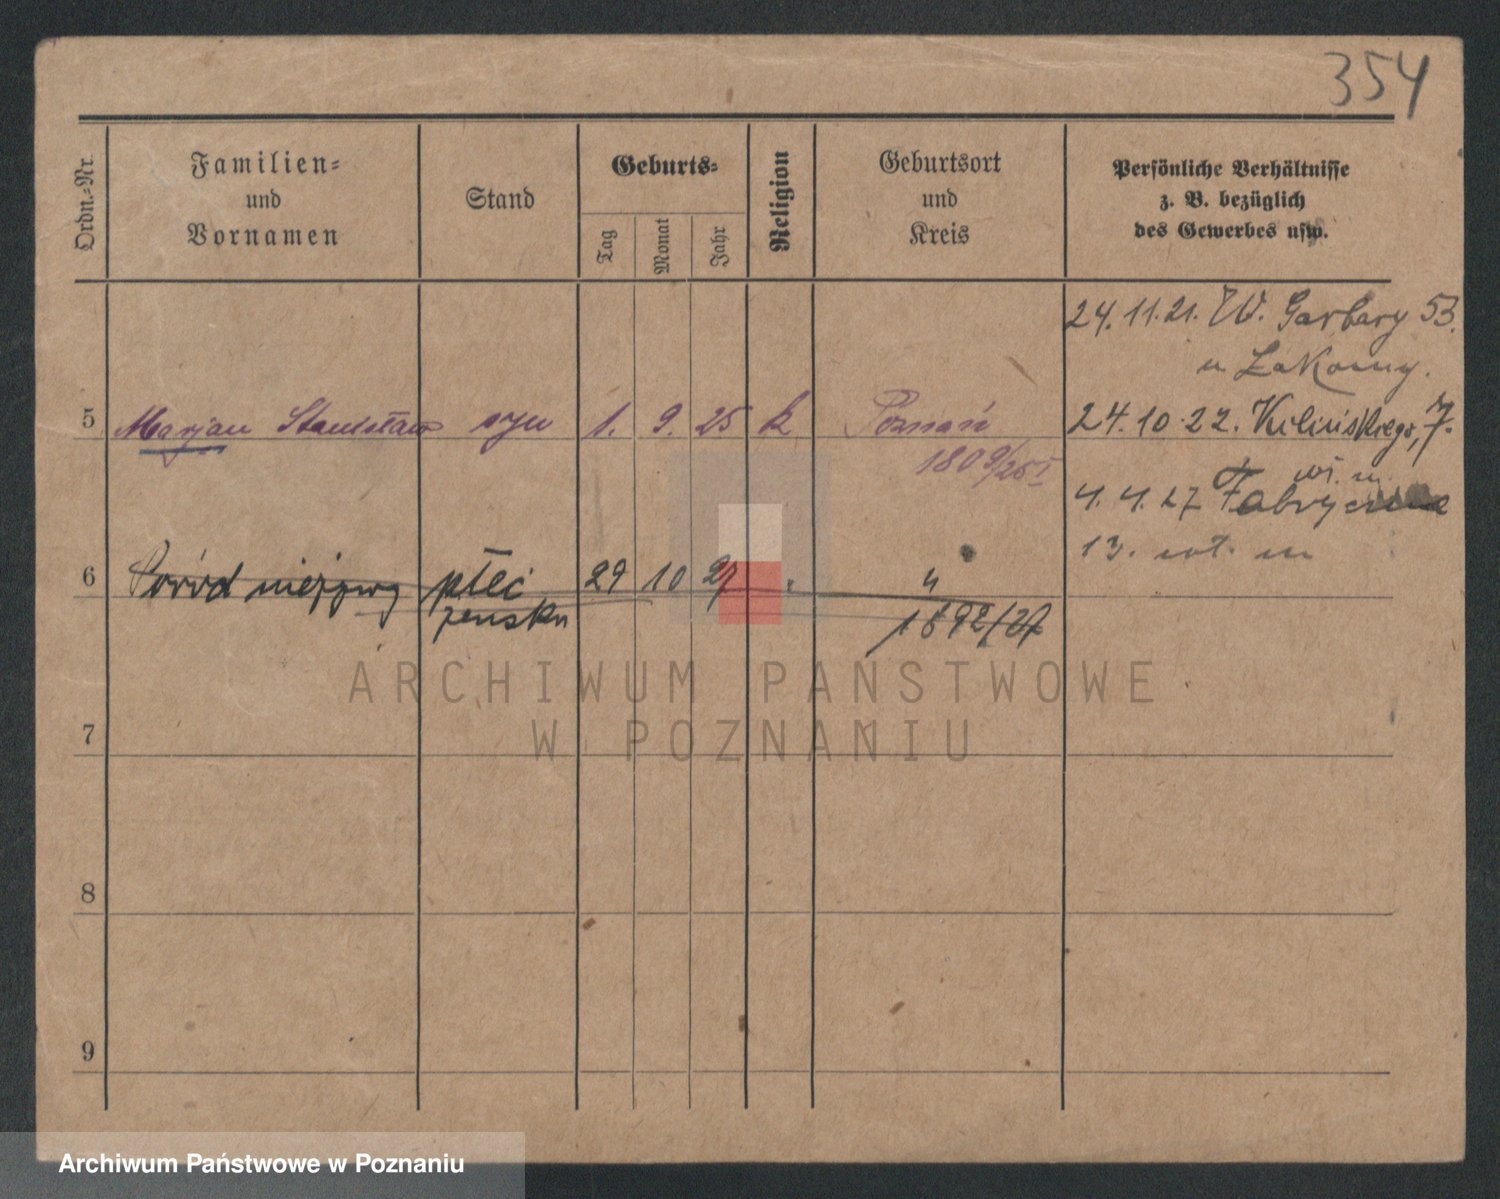 354
Ordn.=Nr.
Familien=
und
Vornamen
Stand
Geburts=
Tag
Monat
Jahr
Religion
Geburtsort
und
Kreis
Persönliche Verhältnisse
z. B. bezüglich
des Gewerbes usw.
24.11.21. W. Garbary 53.
u
5 Marjan Stanisław syn 1. 9. 25 k Poznań
1809/25 I
24.10.22. Kilińskiego, 7.
4.4.27 Fabryczna
13.
6 Poród nieżywy płeć 29 10 27 "
żeńska
1892/27
7
8
9
ARCHIWUM PAŃSTWOWE
W POZNANIU
Archiwum Państwowe w Poznaniu